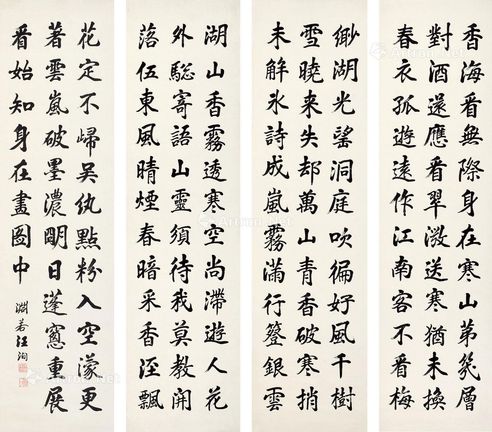 香海看無際身在寒山第幾層
對酒還應看翠送寒猶未換
春衣孤遊遠作江南客不看梅
鄉湖光望洞庭吹徧好風千樹
雪曉来失却萬山青香破寒捎
未解氷詩成嵐霧滿行簦銀雲
湖山香霧透寒空尚滯遊人花
外驄寄語山靈須待我莫教開
落伍東風晴煙春暗采香涇飄
花定不歸吴紈點粉入空濛更
著雲嵐破墨濃明日蓬窓重展
看始知身在畫圖中
淵若汪洵